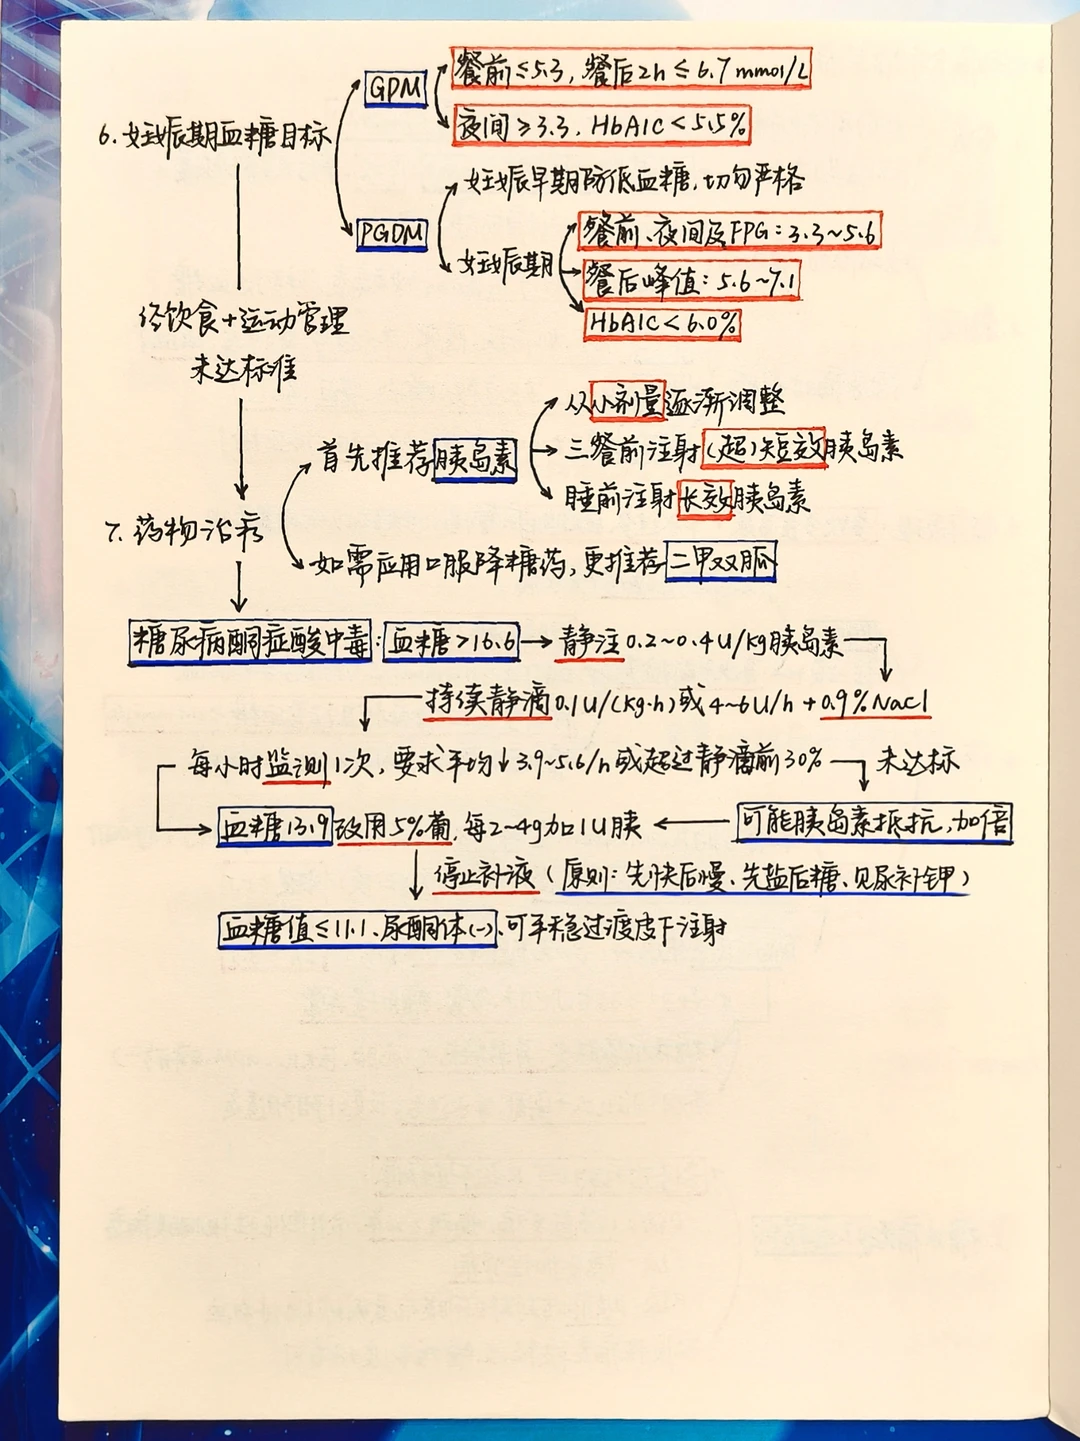 GDM
餐前≤5.3，餐后2h≤6.7mmol/L
夜间≥3.3，HbA1C<5.5%
6.妊娠期血糖目标
PGDM
妊娠早期防低血糖，切勿严格
妊娠期
餐前、夜间及FPG：3.3~5.6
餐后峰值：5.6~7.1
HbA1C<6.0%
经饮食+运动管理
未达标准
首先推荐胰岛素
从小剂量逐渐调整
三餐前注射(超)短效胰岛素
睡前注射长效胰岛素
7.药物治疗
如需应用口服降糖药，更推荐二甲双胍
糖尿病酮症酸中毒：血糖>16.6→静注0.2~0.4U/kg胰岛素
持续静滴0.1U/(kg·h)或4~6U/h+0.9%NaCl
每小时监测1次，要求平均↓3.9~5.6/h或超过静滴前30%→未达标
血糖13.9改用5%葡，每2~4g加1U胰←可能胰岛素抵抗，加倍
停止补液(原则：先快后慢、先盐后糖、见尿补钾)
血糖值≤11.1、尿酮体(-)、可平稳过渡皮下注射